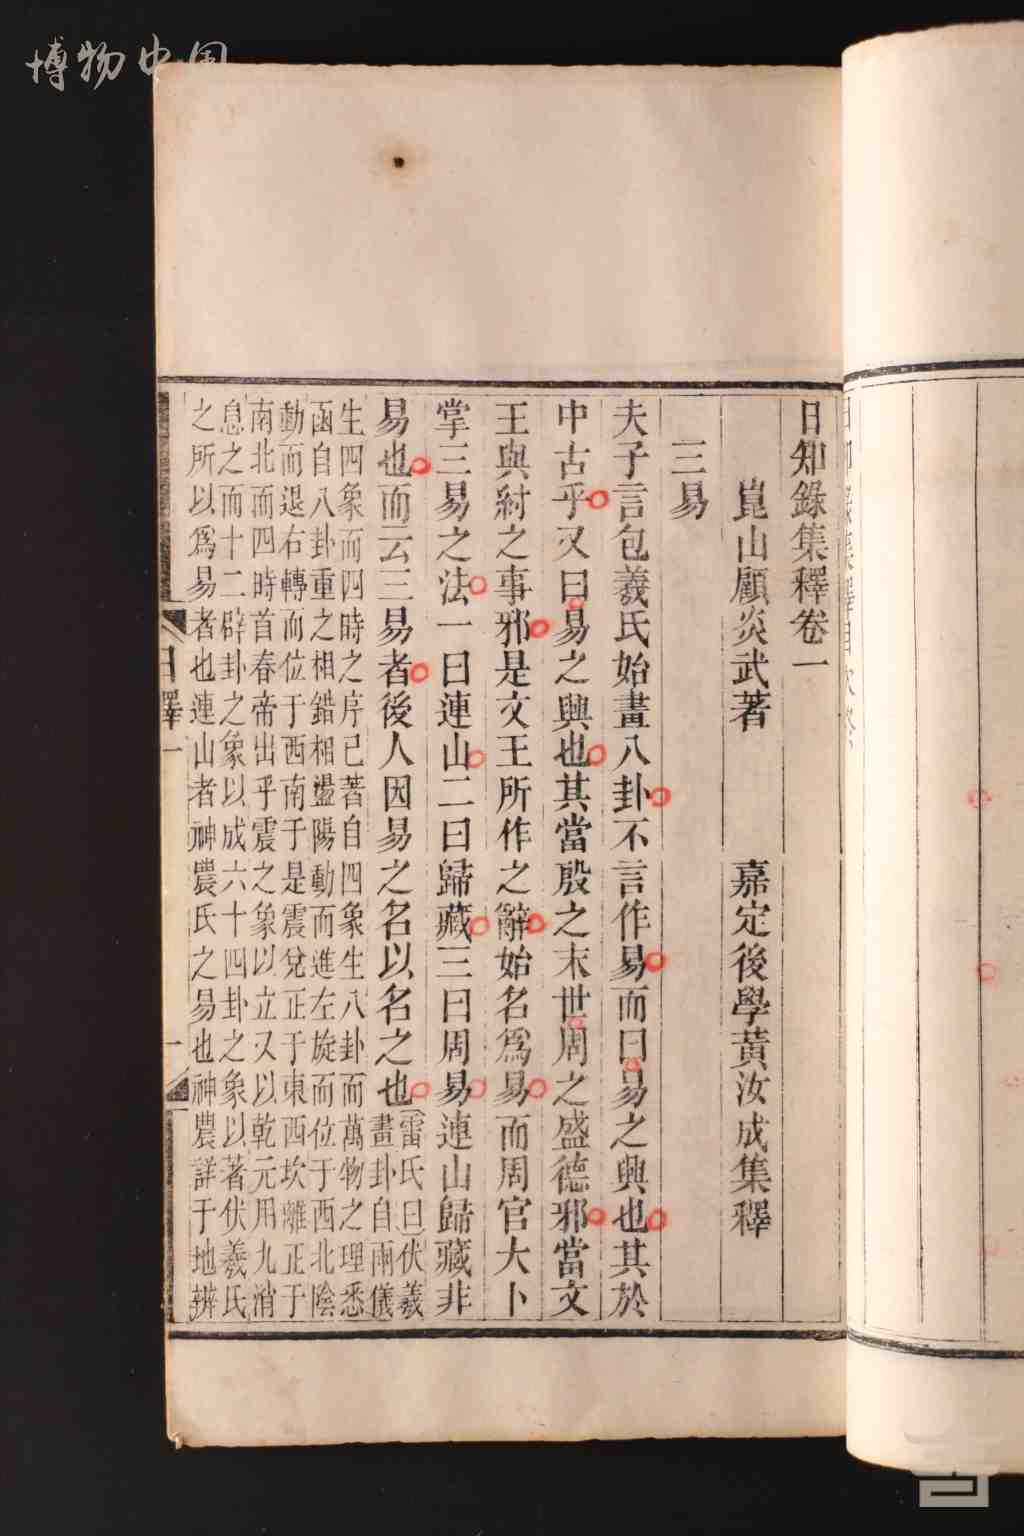 博物中国
日知錄集釋卷一
崑山顧炎武著 嘉定後學黃汝成集釋
三易
夫子言包羲氏始畫八卦不言作易而曰易之興也其於
中古乎又曰易之興也其當殷之末世周之盛德邪當文
王與紂之事邪是文王所作之辭始名爲易而周官大卜
掌三易之法一曰連山二曰歸藏三曰周易連山歸藏非
易也而云三易者後人因易之名以名之也
雷氏曰伏羲
畫卦自兩儀
生四象而四時之序已著自四象生八卦而萬物之理悉
函自八卦重之相錯相盪陽動而進左旋而位于西北陰
動而退右轉而位于西南于是震兌正于東西坎離正于
南北而四時首春帝出乎震之象以立又以乾元用九消
息之而十二辟卦之象以成六十四卦之象以著伏羲氏
之所以爲易者也連山者神農氏之易也神農詳于地辨
日釋一
一